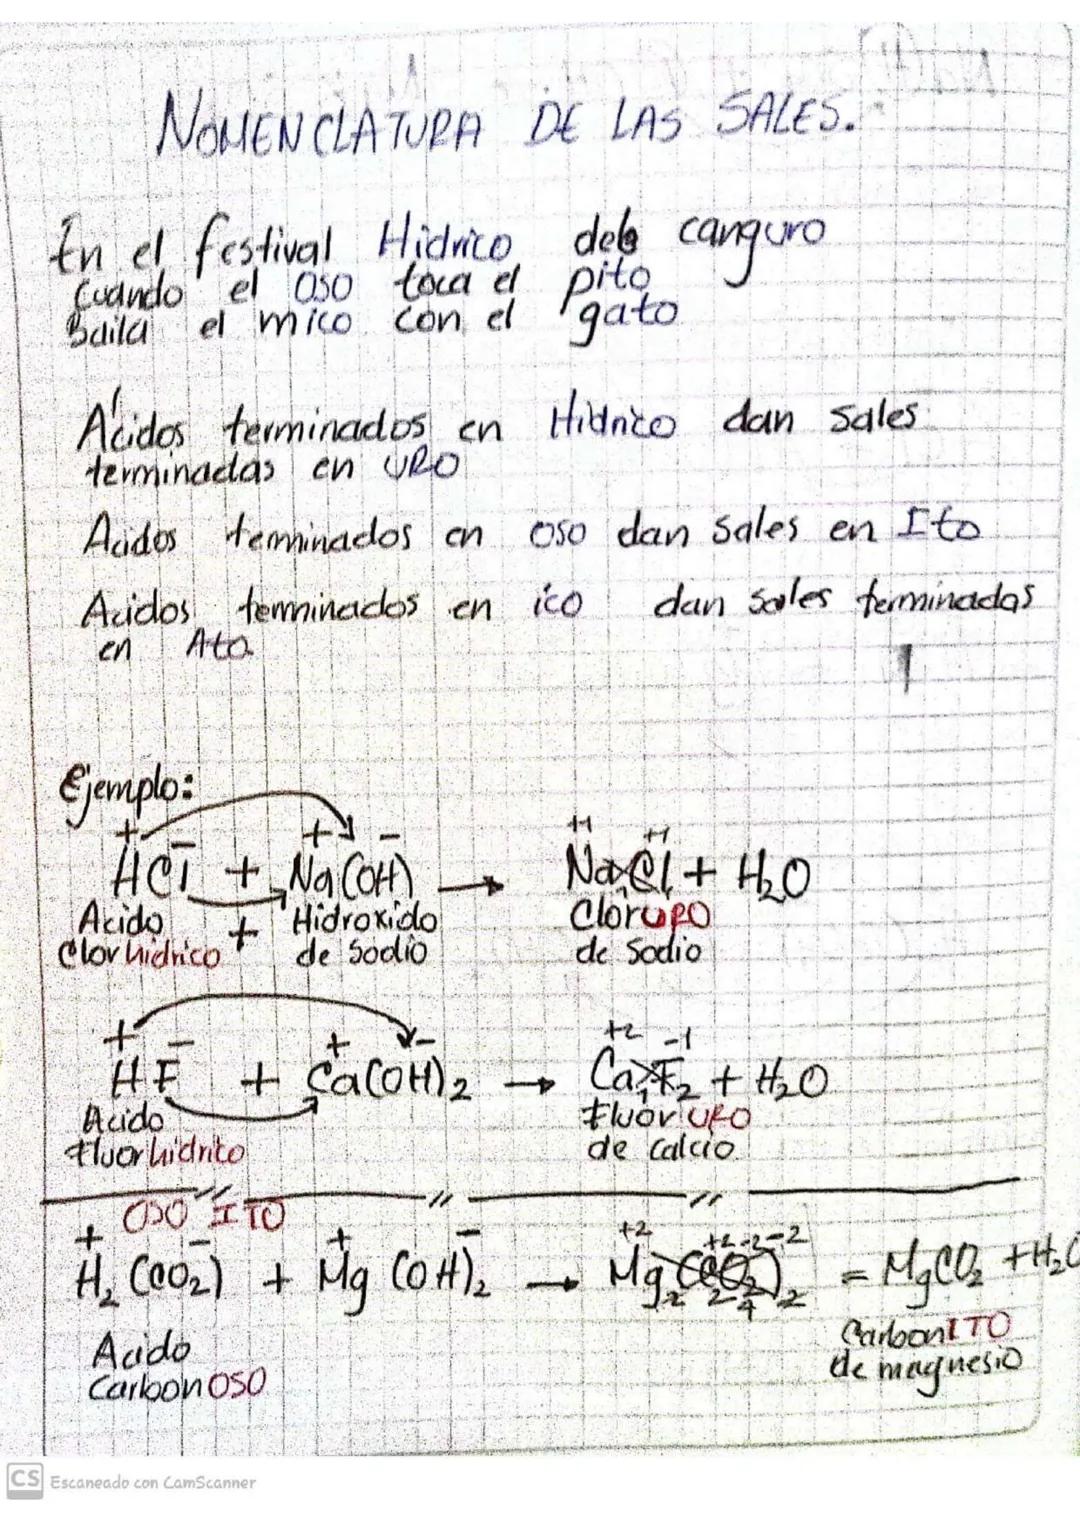 NOMENCLATURA DE LAS SALES.
En el festival Hidrico del canguro
Cuando el OSO toca el pito
Baila el mico con el gato
Ácidos terminados en Hidrico dan sales
terminadas en URO
Acidos terminados en OSO dan sales en Ito
Acidos terminados en ico dan sales terminadas
en Ato
Ejemplo:
+ - + - +1 +1
HCl + Na(OH) → NaCl + H2O
Acido + Hidroxido ClorURO
Clorhidrico de Sodio de Sodio
+ - + - +2 -1
HF + Ca(OH)2 → CaF2 + H2O
Acido FluorURO
Fluorhidrico de calcio
OSO ITO
+ - + - +2 +2 -2 -2
H2(CO2) + Mg(OH)2 → Mg2(CO2)2 = MgCO2 + H2O
Acido CarbonITO
CarbonOSO de magnesio
CS Escaneado con CamScanner